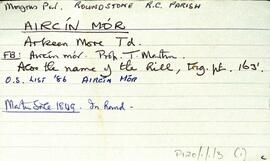 Moyrus Par. ROUNDSTONE R.C. PARISH
AIRCÍN MÓR
Arkeen More Td.
FB: Aircín mór. Prop. T. Martin.
Also the name of the hill, trig. pt. 163'.
O.S. LIST '86 AIRCÍN MÓR
Martin Sale 1849. In hand.
P120/1/13 (i)